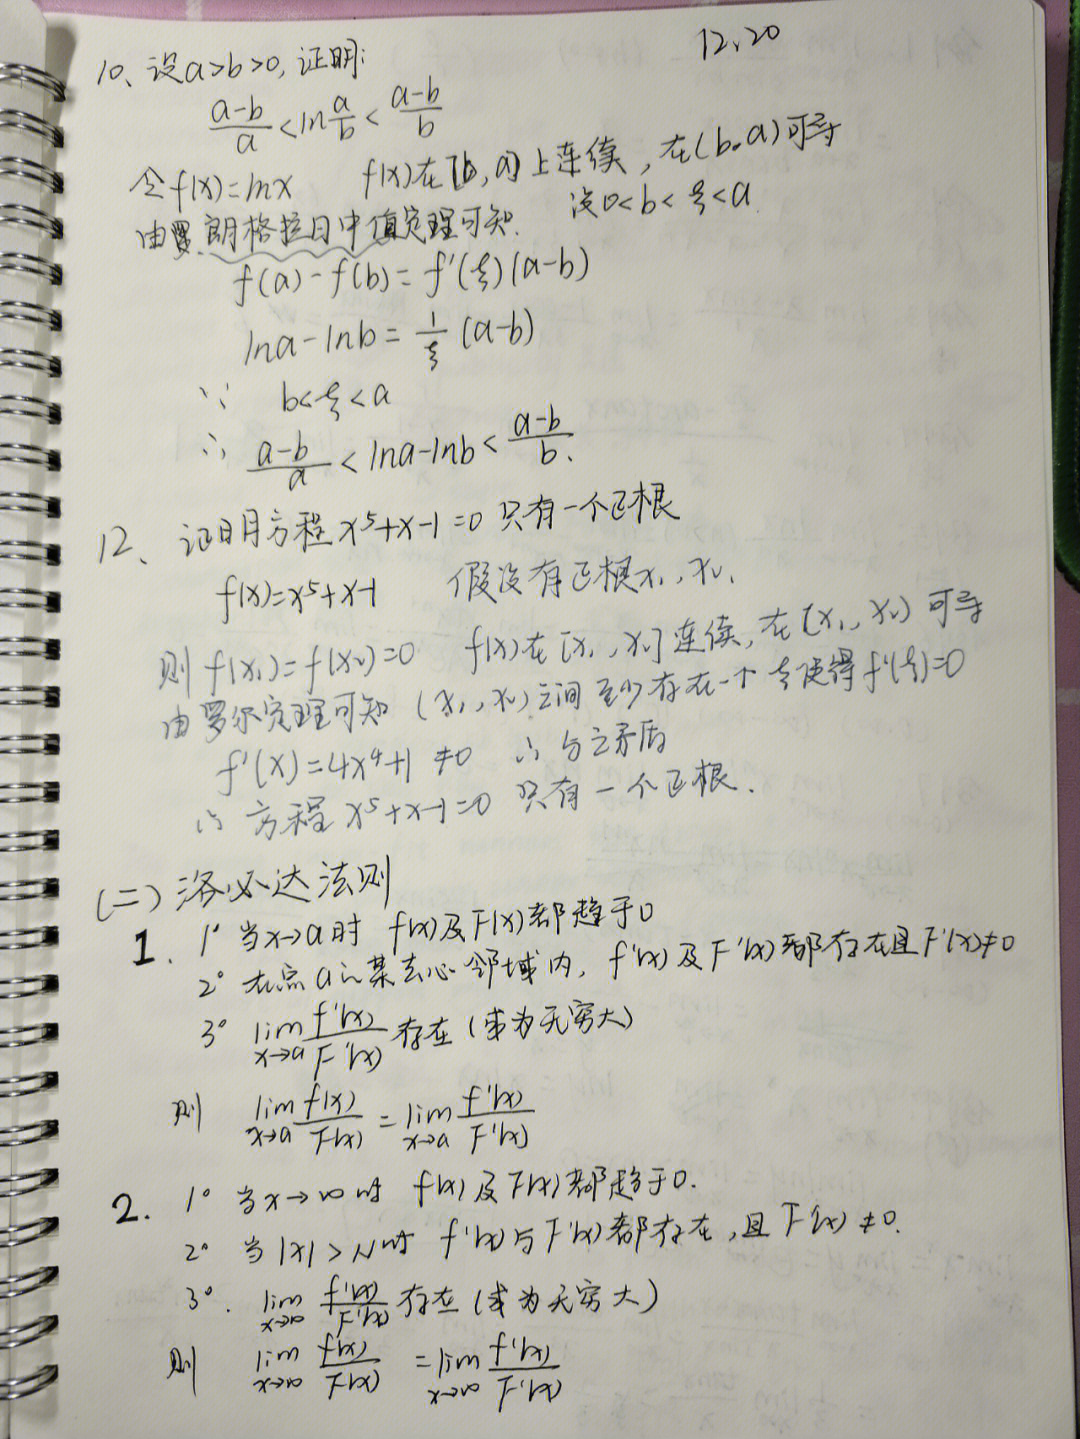 12.20
10、设a>b>0,证明:
(a-b)/a < ln a/b < (a-b)/b
令f(x)=lnx f(x)在[b,a]上连续,在(b,a)可导
设0<b<ξ<a
由 朗格拉日中值定理可知.
f(a)-f(b)=f'(ξ)(a-b)
lna-lnb=1/ξ (a-b)
∵ b<ξ<a
∴ (a-b)/a < lna-lnb < (a-b)/b.
12、证明方程x⁵+x-1=0 只有一个正根
f(x)=x⁵+x-1 假设有正根x₁,x₂.
则f(x₁)=f(x₂)=0 f(x)在[x₁,x₂]连续,在[x₁,x₂)可导
由罗尔定理可知(x₁,x₂)之间至少存在一个ξ使得f'(ξ)=0
f'(x)=4x⁴+1≠0 ∴与之矛盾
∴方程x⁵+x-1=0 只有一个正根.
(二)洛必达法则
1. 1° 当x→a时 f(x)及F(x)都趋于0
2° 在点a的某去心邻域内,f'(x)及F'(x)都存在且F'(x)≠0
3° lim x→a f'(x)/F'(x) 存在(或为无穷大)
则 lim x→a f(x)/F(x) = lim x→a f'(x)/F'(x)
2. 1° 当x→∞时 f(x)及F(x)都趋于0.
2° 当|x|>N时 f'(x)与F'(x)都存在,且F'(x)≠0.
3°. lim x→∞ f'(x)/F'(x) 存在(或为无穷大)
则 lim x→∞ f(x)/F(x) = lim x→∞ f'(x)/F'(x)